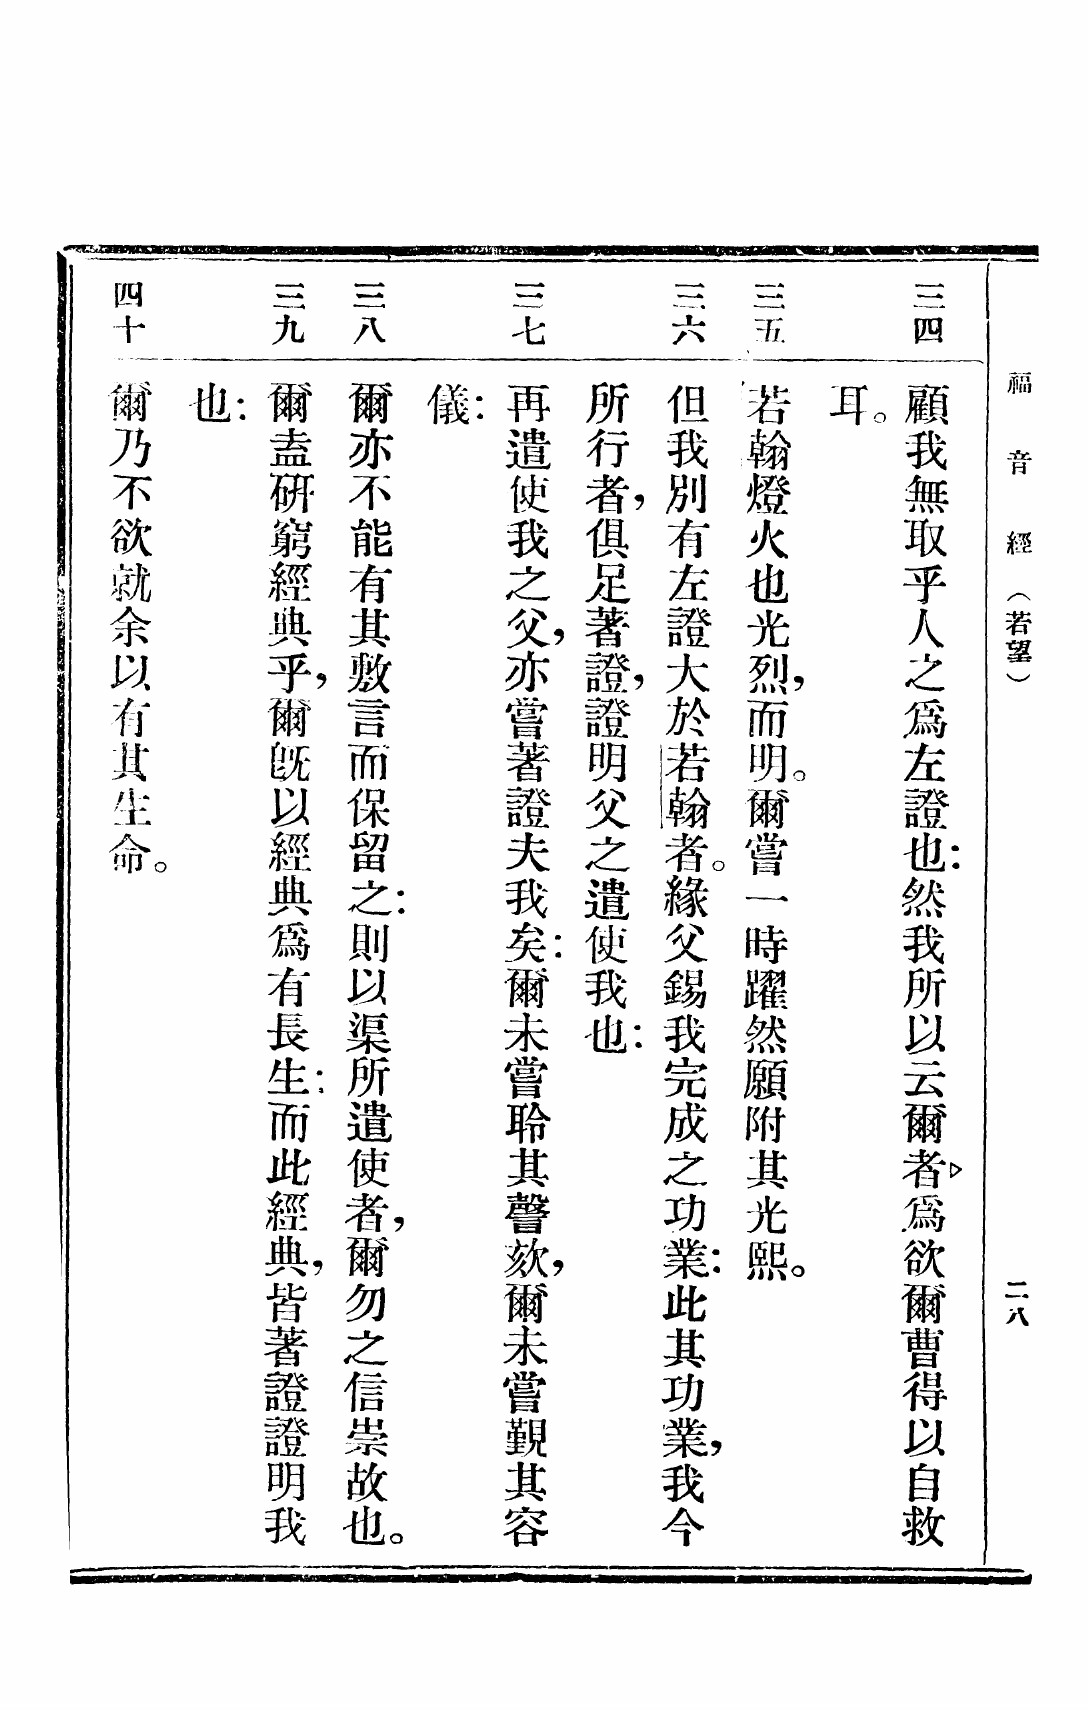 福音經（若望）
二八
三四
顧我無取乎人之爲左證也：然我所以云爾者，爲欲爾曹得以自救
耳。
三五
若翰燈火也光烈，而明。爾嘗一時躍然願附其光熙。
三六
但我別有左證大於若翰者。緣父錫我完成之功業：此其功業，我今
所行者，俱足著證，證明父之遣使我也：
三七
再遣使我之父，亦嘗著證夫我矣：爾未嘗聆其謦欬，爾未嘗覲其容
儀：
三八
爾亦不能有其敷言而保留之：則以渠所遣使者，爾勿之信崇故也。
三九
爾盍研窮經典乎，爾旣以經典爲有長生：而此經典，皆著證證明我
也：
四十
爾乃不欲就余以有其生命。